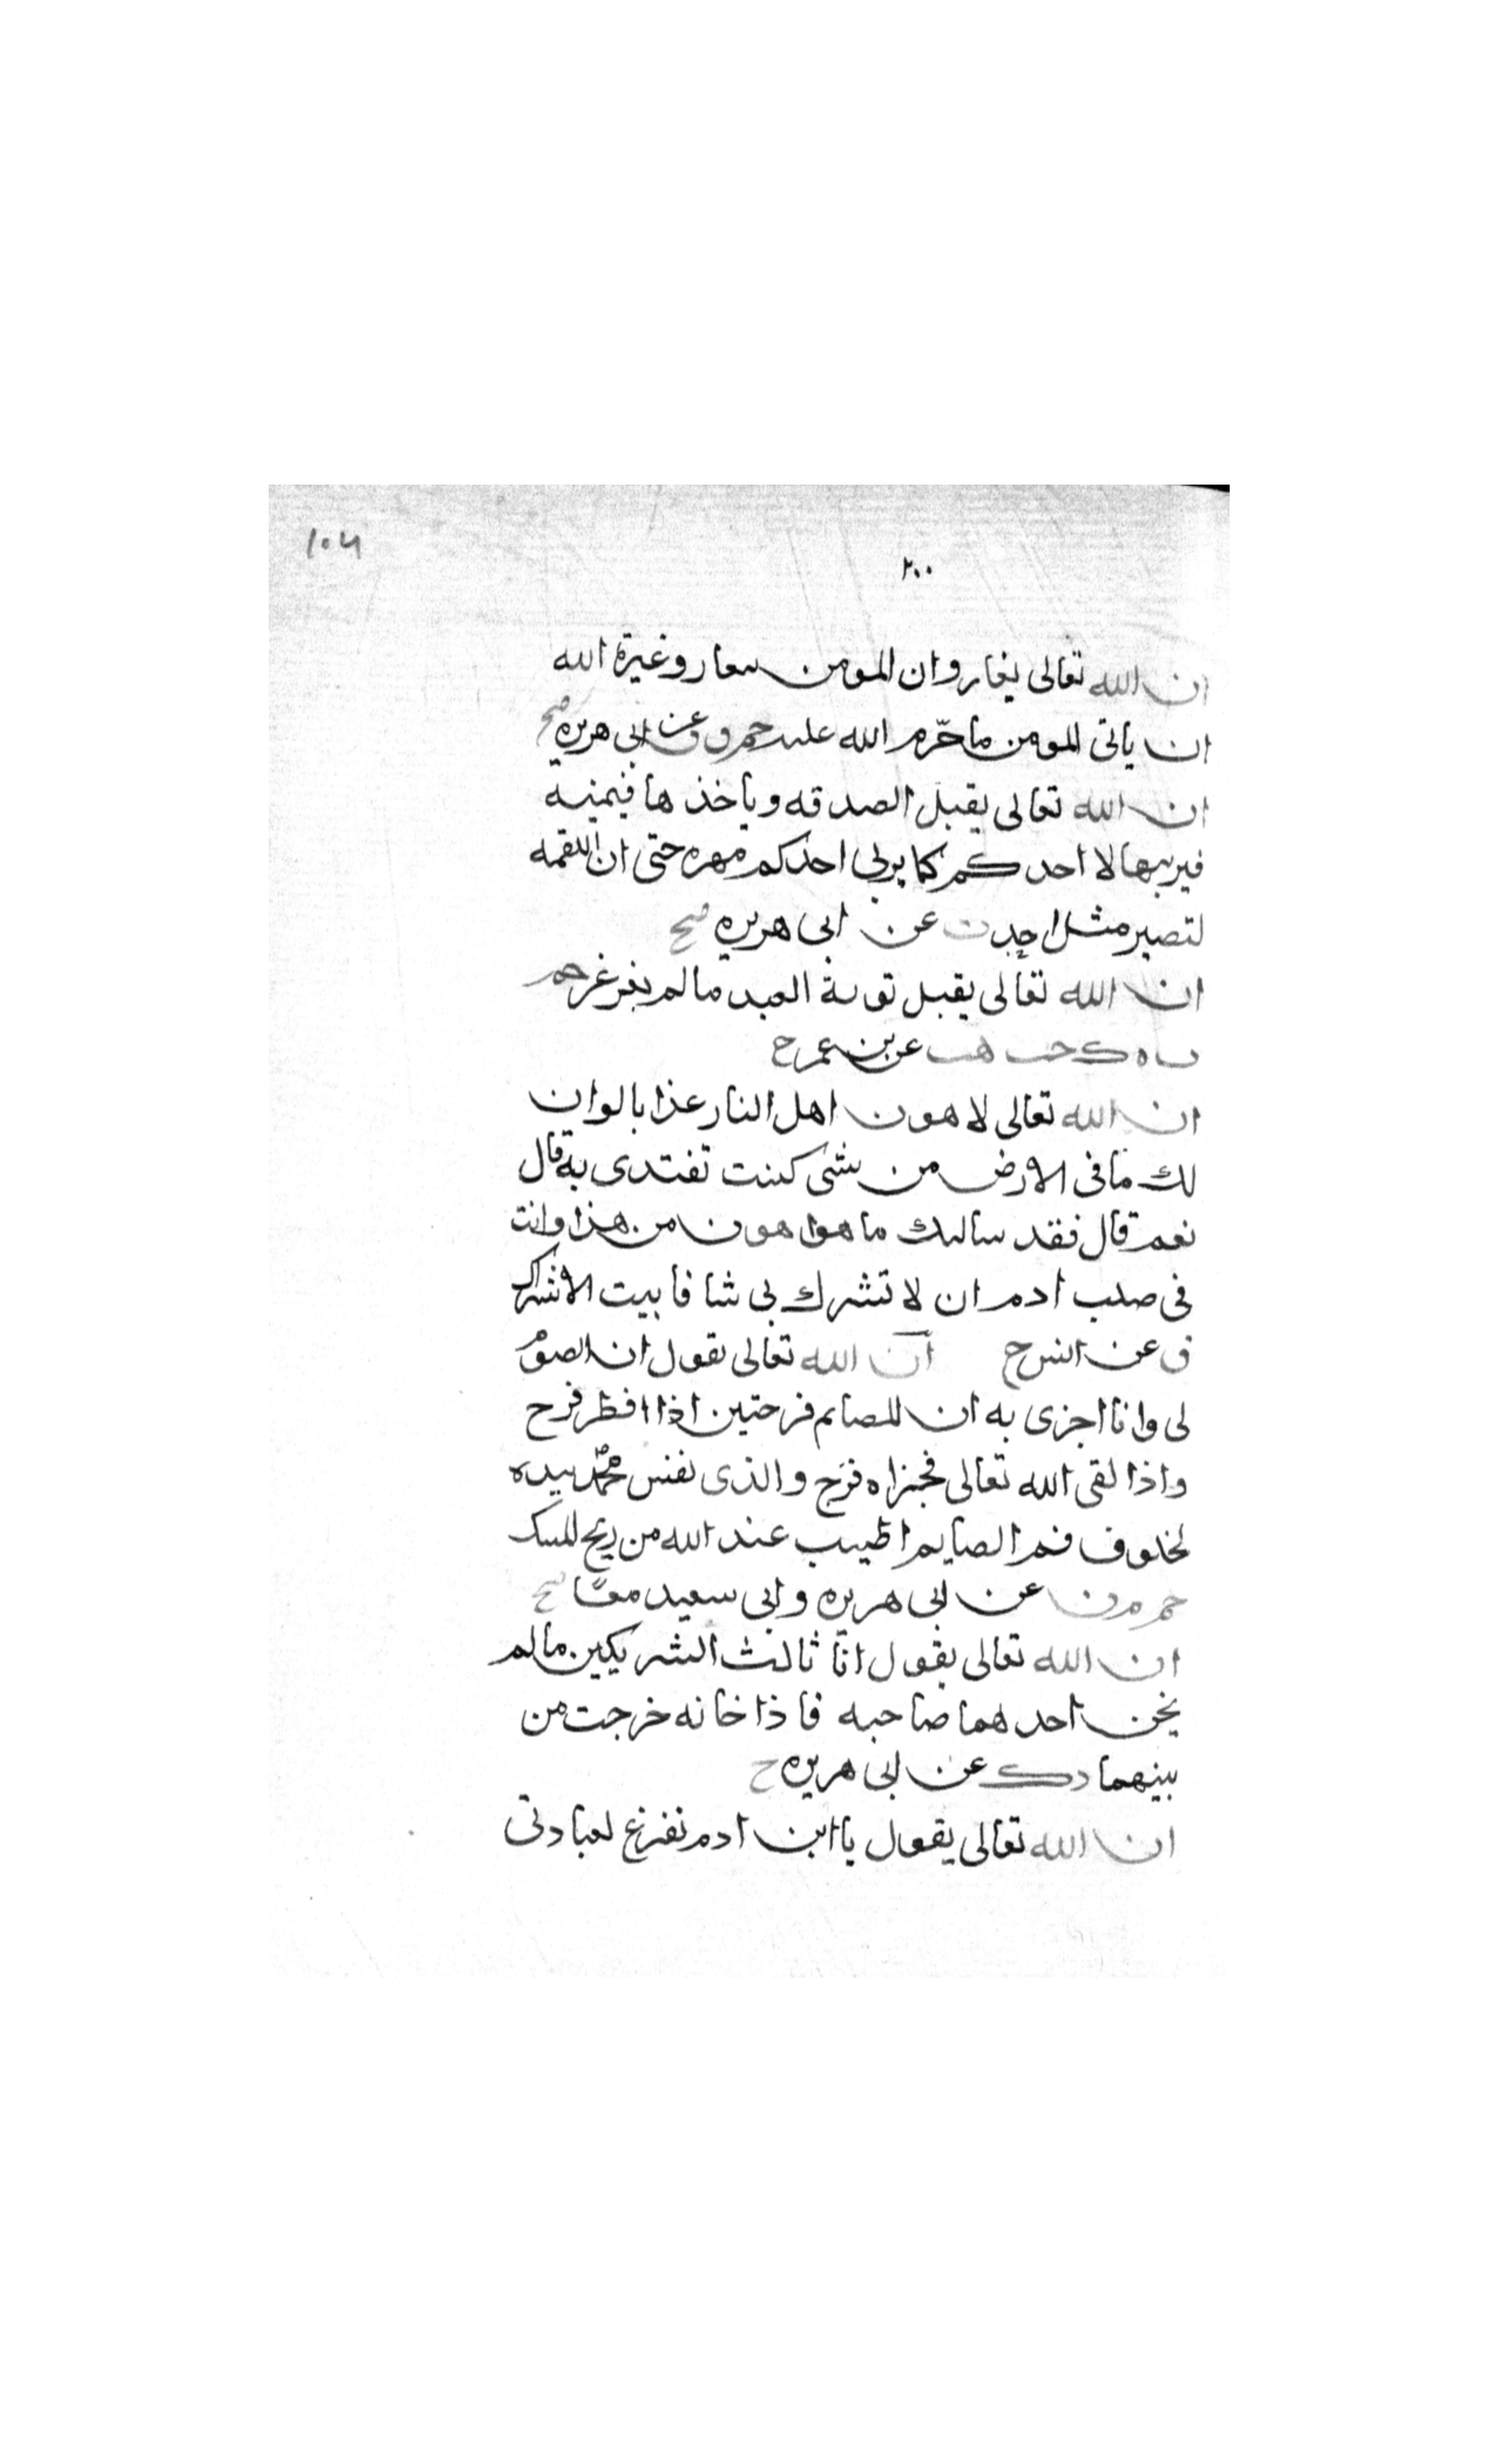 ١٠٦
٢٠٠
ان الله تعالى يغار وان المومن يغار وغيرة الله
ان ياتى المومن ما حرّم الله عليه حم ق عن ابى هريره صح
ان الله تعالى يقبل الصدقه وياخذها بيمينه
فيربيها لاحدكم كما يربى احدكم مهره حتى ان اللقمه
لتصير مثل احد ت عن ابى هريره صح
ان الله تعالى يقبل توبة العبد ما لم يغرغر حم
ت ه ك حب هب عن بن عمر ح
ان الله تعالى لاهون اهل النار عذابا لو ان
لك ما فى الارض من شى كنت تفتدى به قال
نعم قال فقد سالتك ما هو اهون من هذا وانت
فى صلب ادم ان لا تشرك بى شا فابيت الا الشرك
ق عن انس ح ان الله تعالى يقول ان الصوم
لى وانا اجزى به ان للصايم فرحتين اذا افطر فرح
واذا لقى الله تعالى فجزاه فرح والذى نفس محمد بيده
لخلوف فم الصايم اطيب عند الله من ريح المسك
حم م ن عن ابى هريره وابى سعيد معًا صح
ان الله تعالى يقول انا ثالث الشريكين ما لم
يخن احدهما صاحبه فاذا خانه خرجت من
بينهما د ك عن ابى هريره ح
ان الله تعالى يقول يا ابن ادم تفرغ لعبادتى